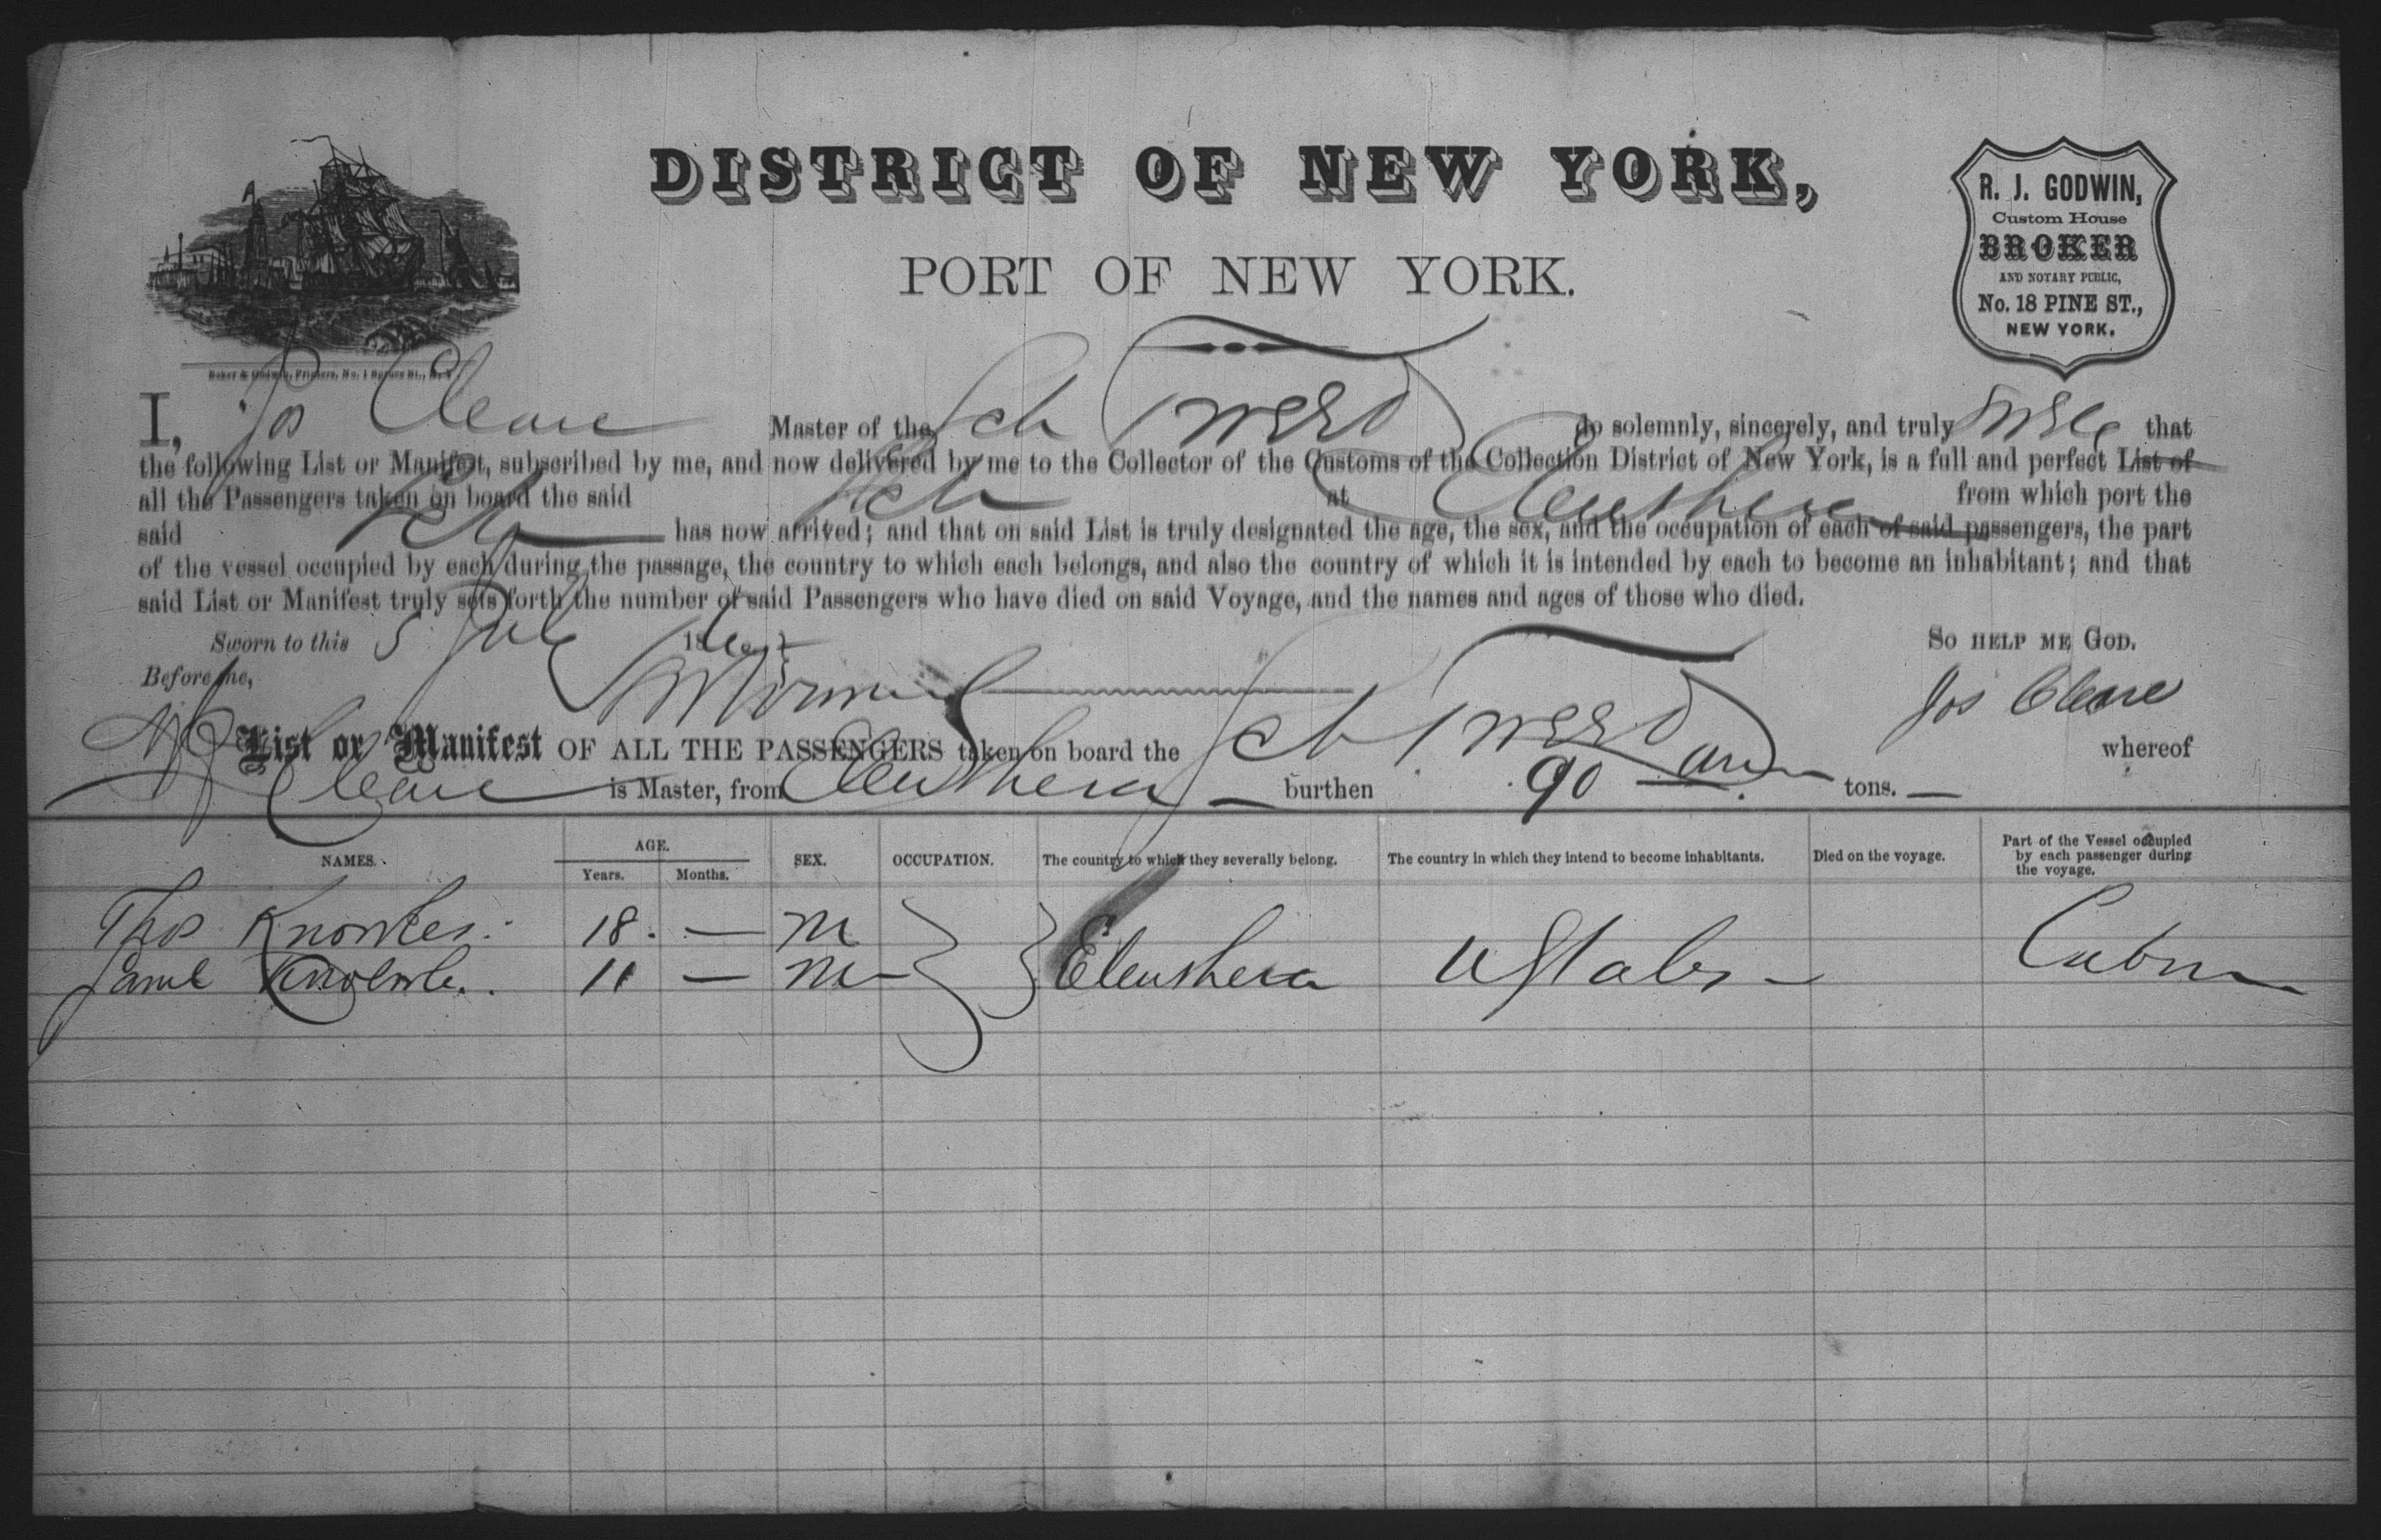 DISTRICT OF NEW YORK,
PORT OF NEW YORK.
R. J. GODWIN,
Custom House
BROKER
AND NOTARY PUBLIC,
No. 18 PINE ST.,
NEW YORK.
Baker & Godwin, Printers, No. 1 Spruce St., N. Y.
I, Jos Cleare Master of the Sch Tweed do solemnly, sincerely, and truly that
the following List or Manifest, subscribed by me, and now delivered by me to the Collector of the Customs of the Collection District of New York, is a full and perfect List of
all the Passengers taken on board the said Sch at Eleuthera from which port the
said Sch has now arrived; and that on said List is truly designated the age, the sex, and the occupation of each of said passengers, the part
of the vessel occupied by each during the passage, the country to which each belongs, and also the country of which it is intended by each to become an inhabitant; and that
said List or Manifest truly sets forth the number of said Passengers who have died on said Voyage, and the names and ages of those who died.
Sworn to this 5 July 18 So HELP ME GOD.
Before me, Jos Cleare
List or Manifest OF ALL THE PASSENGERS taken on board the Sch Tweed whereof
Cleare is Master, from Eleuthera burthen 90 tons.
NAMES. AGE. SEX. OCCUPATION. The country to which they severally belong. The country in which they intend to become inhabitants. Died on the voyage. Part of the Vessel occupied by each passenger during the voyage.
Years. Months.
Thos Knowles 18 — M
Saml Knowles 11 — M Eleuthera U States Cabin